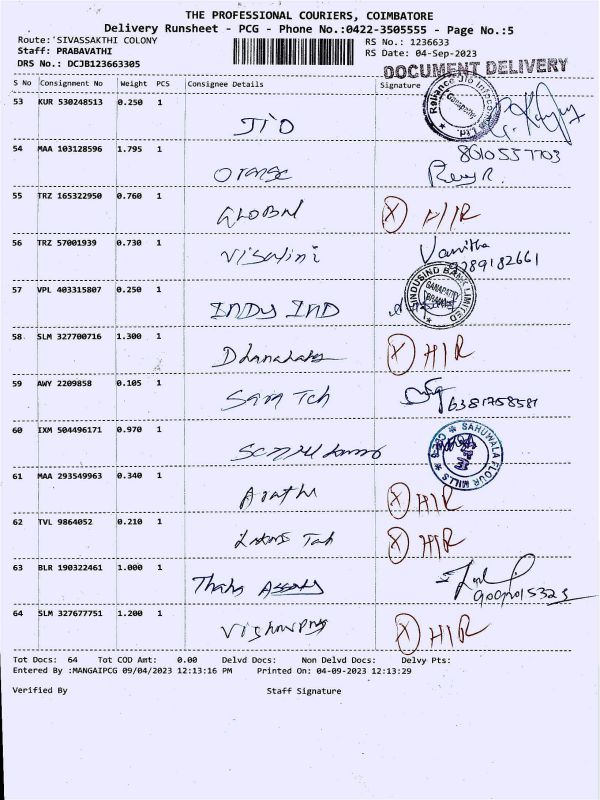 THE PROFESSIONAL COURIERS, COIMBATORE
Delivery Runsheet - PCG - Phone No.:0422-3505555 - Page No.:5
Route:'SIVASSAKTHI COLONY
RS No.: 1236633
Staff: PRABAVATHI
RS Date: 04-Sep-2023
DRS No.: DCJB123663305
DOCUMENT DELIVERY
S No Consignment No Weight PCS Consignee Details Signature
53 KUR 530248513 0.250 1
JIO
Reliance Jio Infocomm Ltd.
Ganapathy
54 MAA 103128596 1.795 1
8010557703
Orange
55 TRZ 165322950 0.760 1
GLOBAL
X H/R
56 TRZ 57001939 0.730 1
Visalini
Vanitha
9789182661
57 VPL 403315807 0.250 1
INDUSIND BANK LIMITED
GANAPATHY
BRANCH
INDUS IND
58 SLM 327700716 1.300 1
X H/R
59 AWY 2209858 0.105 1
Sara Tch
6381758581
60 IXM 504496171 0.970 1
SAHUWALA FLOUR MILLS
CBE-6
61 MAA 293549963 0.340 1
X H/R
62 TVL 9864052 0.210 1
X H/R
63 BLR 190322461 1.000 1
64 SLM 327677751 1.200 1
X H/R
Tot Docs: 64 Tot COD Amt: 0.00 Delvd Docs: Non Delvd Docs: Delvy Pts:
Entered By :MANGAIPCG 09/04/2023 12:13:16 PM Printed On: 04-09-2023 12:13:29
Verified By Staff Signature